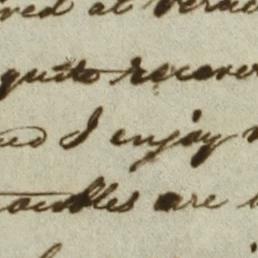 red at Vera
quite recover
and I enjoy
troubles are